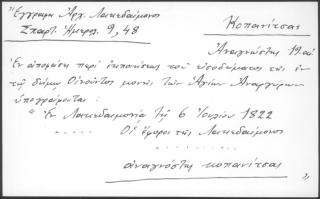 "Έγγραφα Αρχ. Λακεδαίμονος
Σπαρτ. Ημερολ. 9, 48
Κοπανίτσας
Αναγνώστης
Εν αποφάσει περί εκποιήσεως του εισοδήματος της εν
τῳ δήμῳ Οινούντος μονής των Αγίων Αναργύρων
υπογράφεται:
"Εν Λακεδαιμονία τῃ 6 Ιουλίου 1822
Οι έφοροι της Λακεδαίμονος
αναγνόστης κοπανίτσας
"